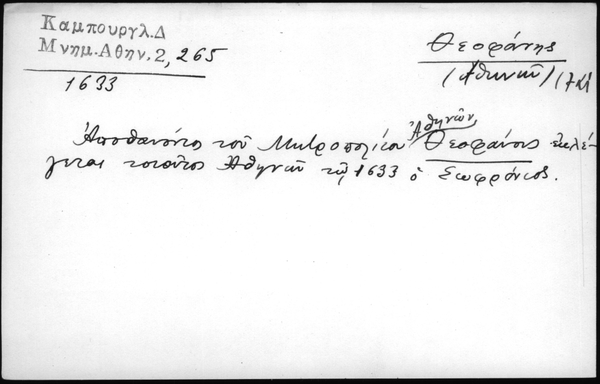 Καμπουργλ.Δ
Μνημ.Αθην.2, 265
1633
Θεοφάνης
(Ἀθηνῶν)
Ἀποθανόντος τοῦ Μητροπολίτου Ἀθηνῶν Θεοφάνους ἐκλέ-
γεται τοιοῦτος Ἀθηνῶν τῷ 1633 ὁ Σωφρόνιος.